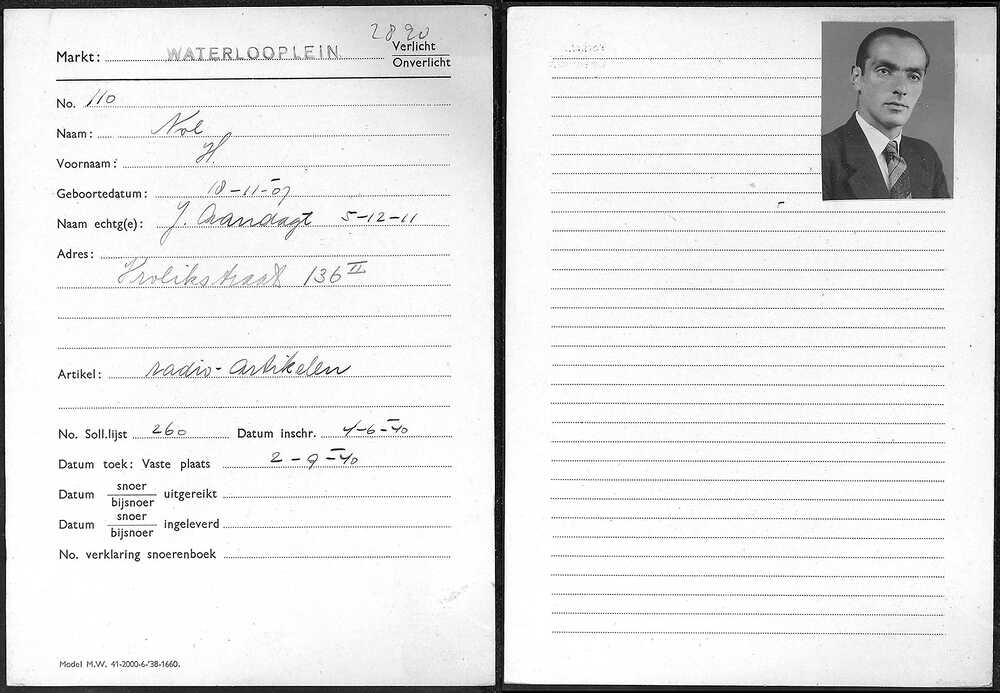 2890
Markt: WATERLOOPLEIN Verlicht
Onverlicht
No. 110
Naam: Nol
Voornaam: H.
Geboortedatum: 18-11-07
Naam echtg(e): J. Crandagt 5-12-11
Adres:
Krolikstraat 136 II
Artikel: radio-artikelen
No. Soll.lijst 260 Datum inschr. 4-6-40
Datum toek: Vaste plaats 2-9-40
Datum snoer uitgereikt
bijsnoer
Datum snoer ingeleverd
bijsnoer
No. verklaring snoerenboek
Model M.W. 41-2000-6-'38-1660.